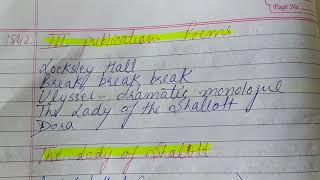 Page No.
1842 III publication Poems
Locksley Hall
Break, break break
Ulysses - dramatic monologue
The Lady of the Shallott
Dora
The Lady of Shallott